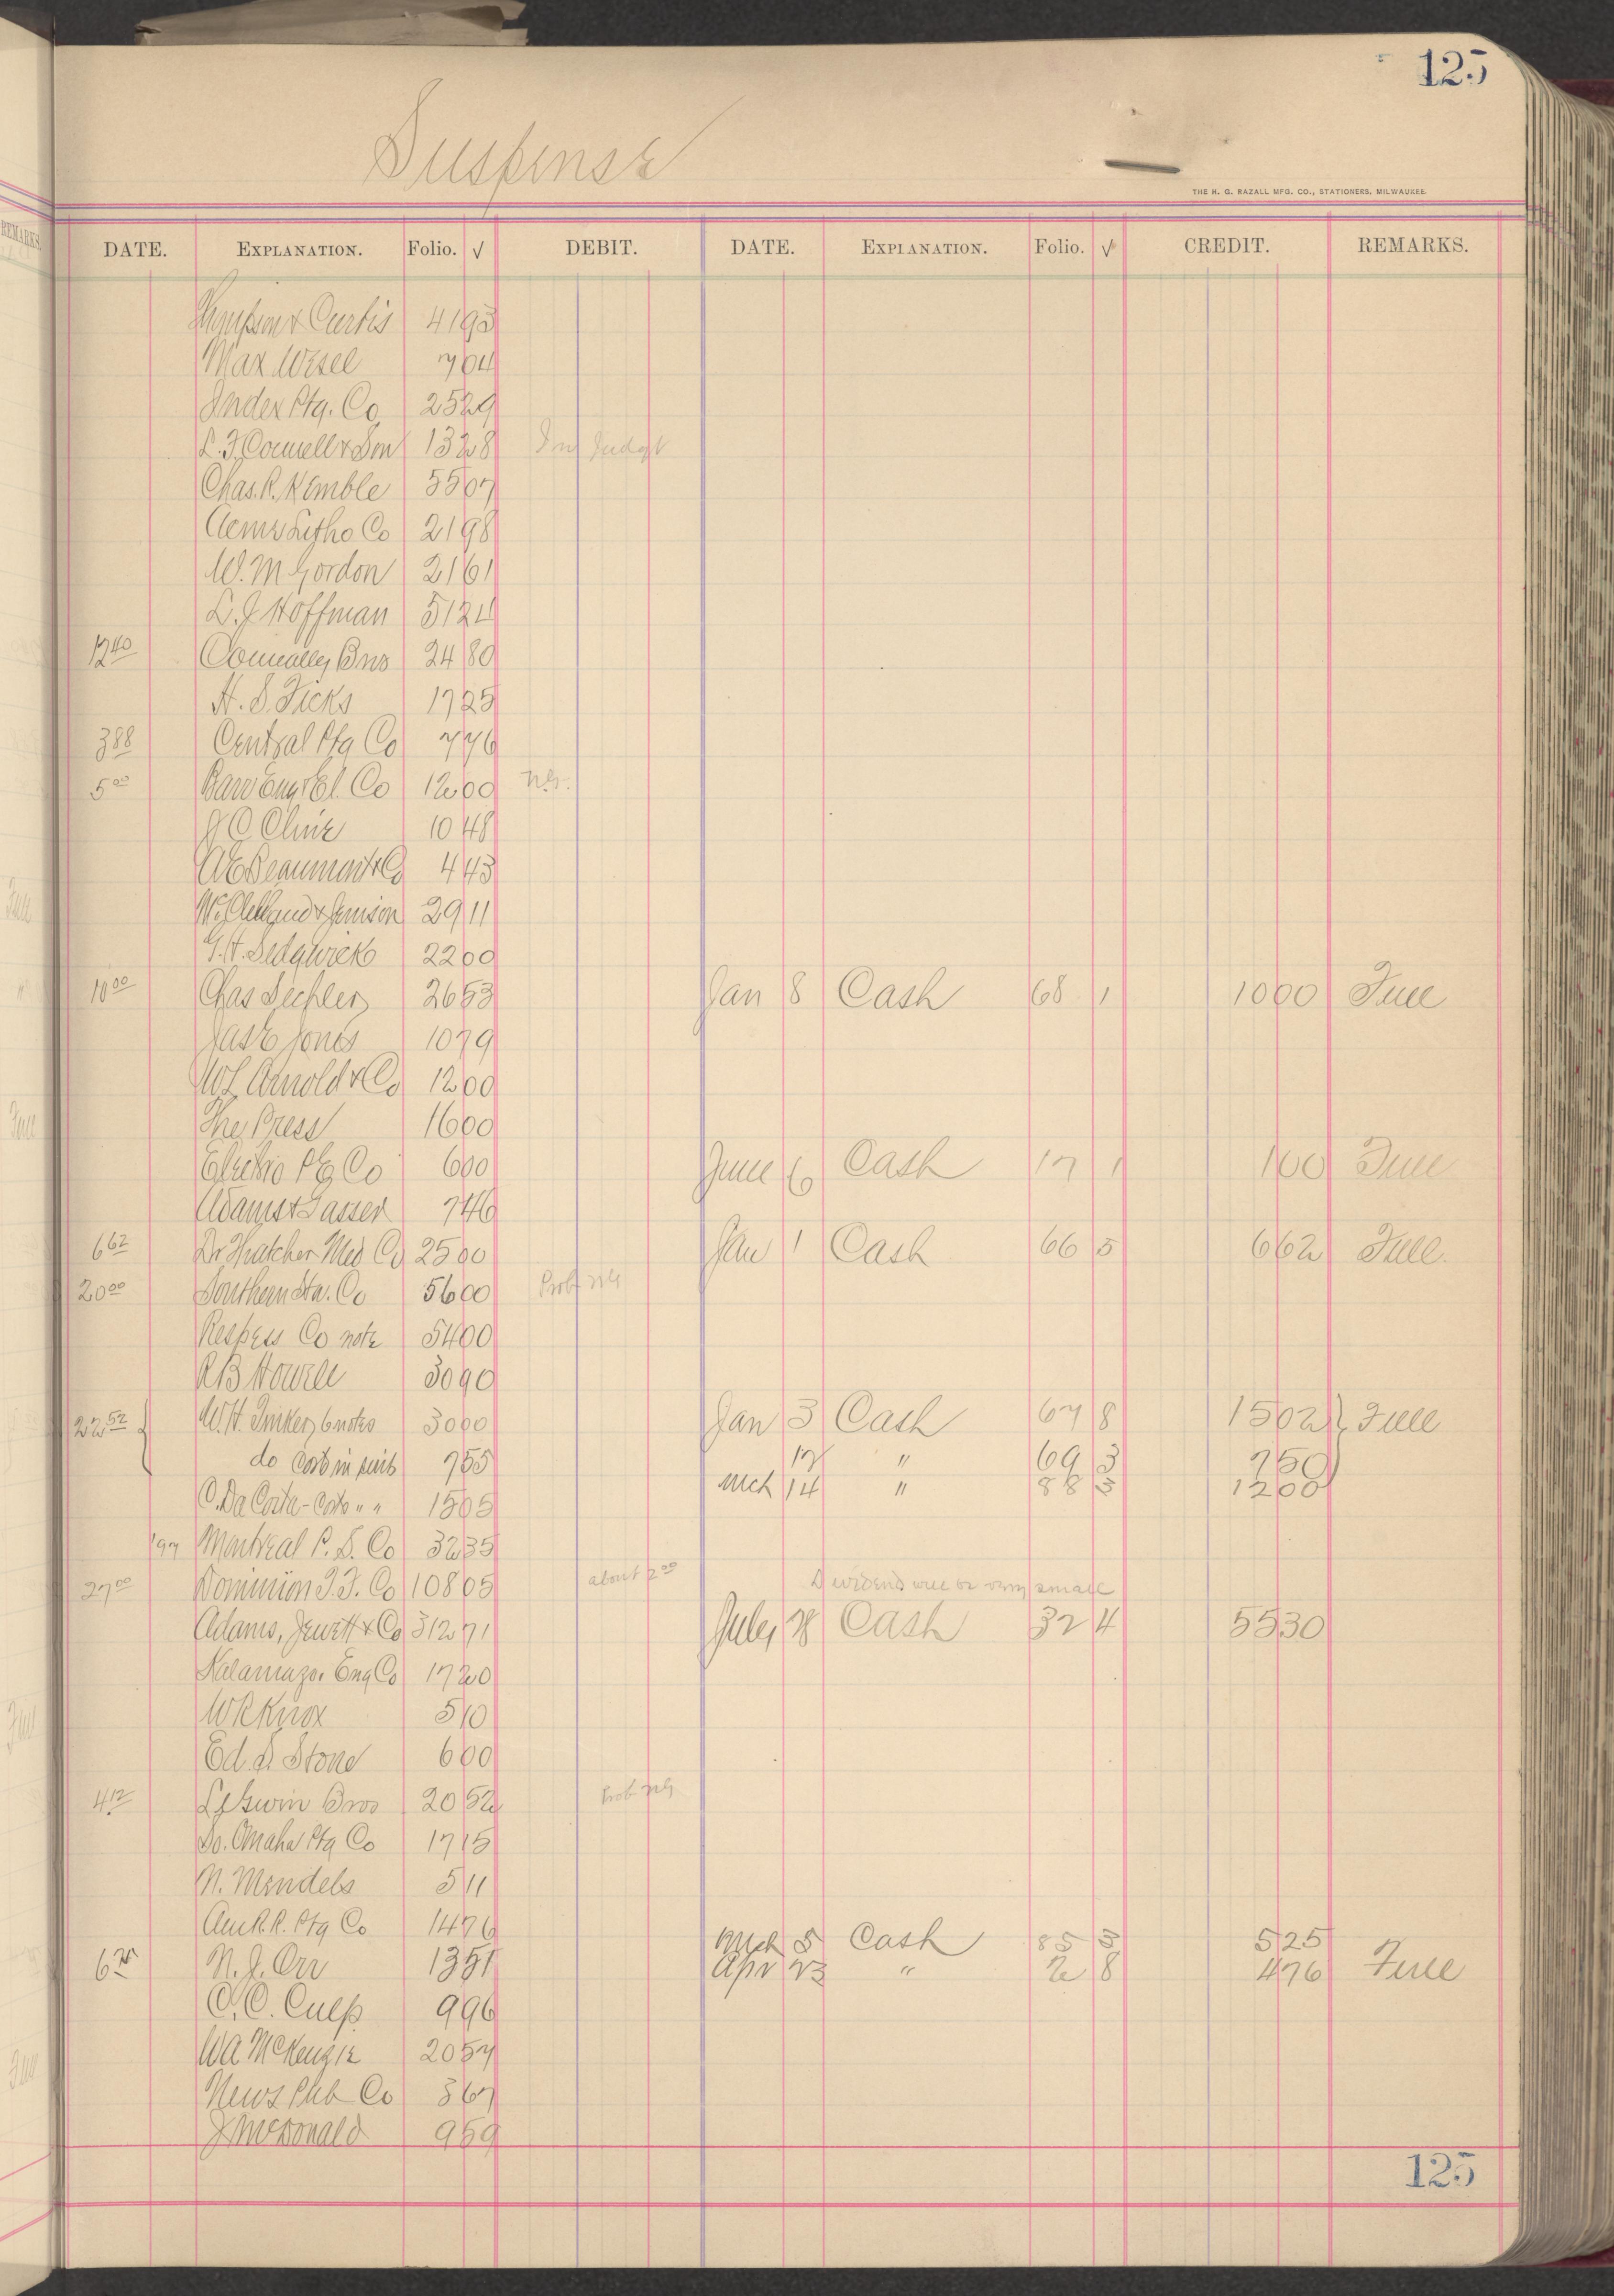 125
Suspense
THE H. G. RAZALL MFG. CO., STATIONERS, MILWAUKEE.
REMARKS
DATE. EXPLANATION. Folio. √ DEBIT. DATE. EXPLANATION. Folio. √ CREDIT. REMARKS.
& Curtis 4195
Max Wesel 704
Index Ptg. Co 2529
L. F. Connell & Son 1328 In Judgt
Chas. R. Kemble 5507
Acme Litho Co 2198
W. M Gordon 2161
L. J Hoffman 5124
12 40 Conneally Bros 2480
H. S. Ficks 1725
3 88 Central Ptg Co 776
5 00 Barr Eng & El. Co 1200 NG.
J C Cline 1048
A E Beaumont & Co 443
McClelland & Jamison 2911
G. H. Sedgwick 2200
10 00 Chas Sechler 2653 Jan 8 Cash 68 1 1000 Full
Jas E Jones 1079
W L Arnold & Co 1200
The Press 1600
Electro Ptg Co 600 June 6 Cash 17 1 100 Full
Adams & Gasser 746
6 62 Dr Thatcher Med Co 2500 Jan 1 Cash 66 5 662 Full
20 00 Southern Sta. Co 5600 Prob NG
Respess Co note 5400
R B Howell 3090
22 52 W. H. Tinker 6 notes 3000 Jan 3 Cash 67 8 1502 Full
do Costs in suit 755 17 " 69 3 750
C. Da Costa - Costs " " 1505 Mch 14 " 88 3 1200
'97 Montreal P. S. Co 3235
27 00 Dominion T. F. Co 10805 about 2 00 Dividends will be very small
Adams, Jewett & Co 31271 July 28 Cash 32 4 5530
Kalamazoo Eng Co 1720
W R Knox 510
Ed. S. Stone 600
4 12 LeGwin Bros 2052 Prob NG
So. Omaha Ptg Co 1715
N. Mendels 511
Am R. R. Ptg Co 1476
Mch 5 Cash 85 3 525
6 75 N. J. Orr 1351 Apr 23 " 2 8 476 Full
C. C. Culp 996
W A McKenzie 2057
News Pub Co 367
J McDonald 959
125